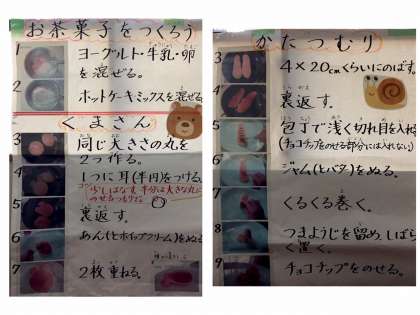 お茶菓子をつくろう
1 ヨーグルト・牛乳・卵
を混ぜる。
2 ホットケーキミックスを混ぜる
くまさん
3 同じ大きさの丸を
2つ作る。
4 1つに耳(半円)をつける。
5 裏返す。
6 あん(とホイップクリーム)をぬる
7 2枚重ねる。
かたつむり
3 4×20cmくらいにのばす。
4 裏返す。
5 包丁で浅く切れ目を入れる
(チョコチップをのせる部分には入れない)
6 ジャム(とバター)をぬる。
7 くるくる巻く。
8 つまようじを留め、しばら
く置く。
9 チョコチップをのせる。